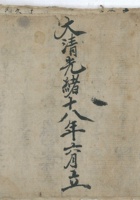 大清光緒十八年六月立